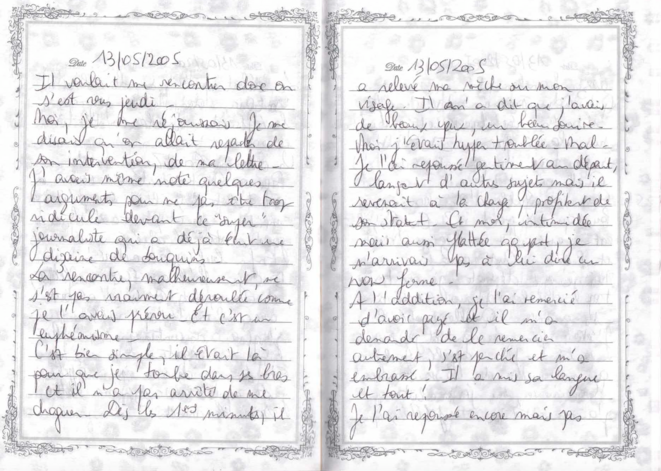 Date 13/05/2005
Il voulait me rencontrer donc on
s'est vus jeudi.
Moi, je me réjouissais. Je me
disais qu'on allait reparler de
son intervention, de ma lettre.
J'avais même noté quelques
arguments, pour ne pas être trop
ridicule devant ce "super"
journaliste qui a déjà écrit une
dizaine de bouquins.
La rencontre, malheureusement, ne
s'est pas vraiment déroulée comme
je l'avais prévu. Et c'est un
euphémisme.
C'est bien simple, il était là
pour que je tombe dans ses bras
et il n'a pas arrêté de me
draguer. Dès les 1res minutes, il
Date 13/05/2005
a relevé ma mèche sur mon
visage. Il m'a dit que j'avais
de beaux yeux, un beau sourire.
Moi j'étais hyper troublée. Mal.
Je l'ai repoussé gentiment au départ,
lançant d'autres sujets mais il
revenait à la charge, profitant de
son statut. Et moi, intimidée
mais aussi flattée, je
n'arrivais pas à lui dire un
non ferme.
A l'addition, je l'ai remercié
d'avoir payé et il m'a
demandé de le remercier
autrement, s'est penché et m'a
embrassé. Il a mis sa langue
et tout!
Je l'ai repoussé encore mais pas